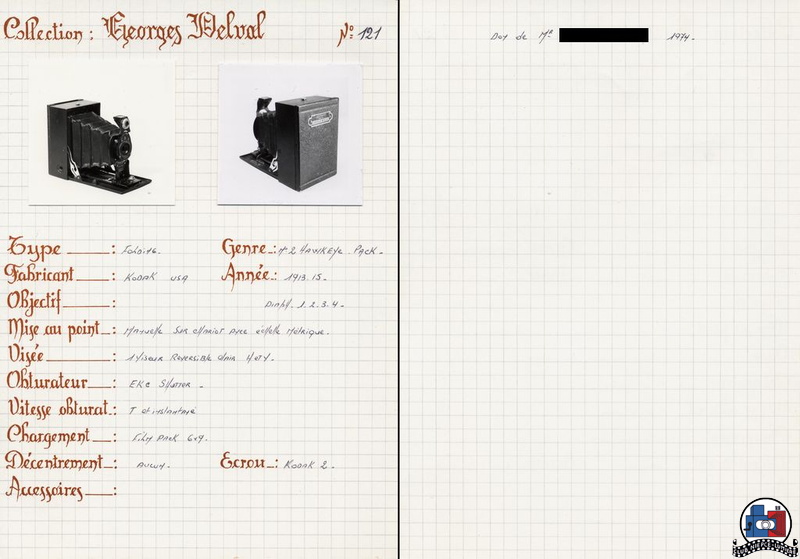 Collection : Georges Delval N° 121
Type : Folding. Genre : N° 2 HAWKEYE PACK.
Fabricant : KODAK USA Année : 1913.15.
Objectif : Diaph. 1.2.3.4.
Mise au point : Manuelle sur chariot avec échelle métrique.
Visée : 1 Viseur Reversible
Obturateur : EKC Shutter
Vitesse obturat. : T et instantané
Chargement : Film Pack 6x9.
Décentrement : Aucun. Ecrou : KODAK 2.
Accessoires :
de Mr 1974.